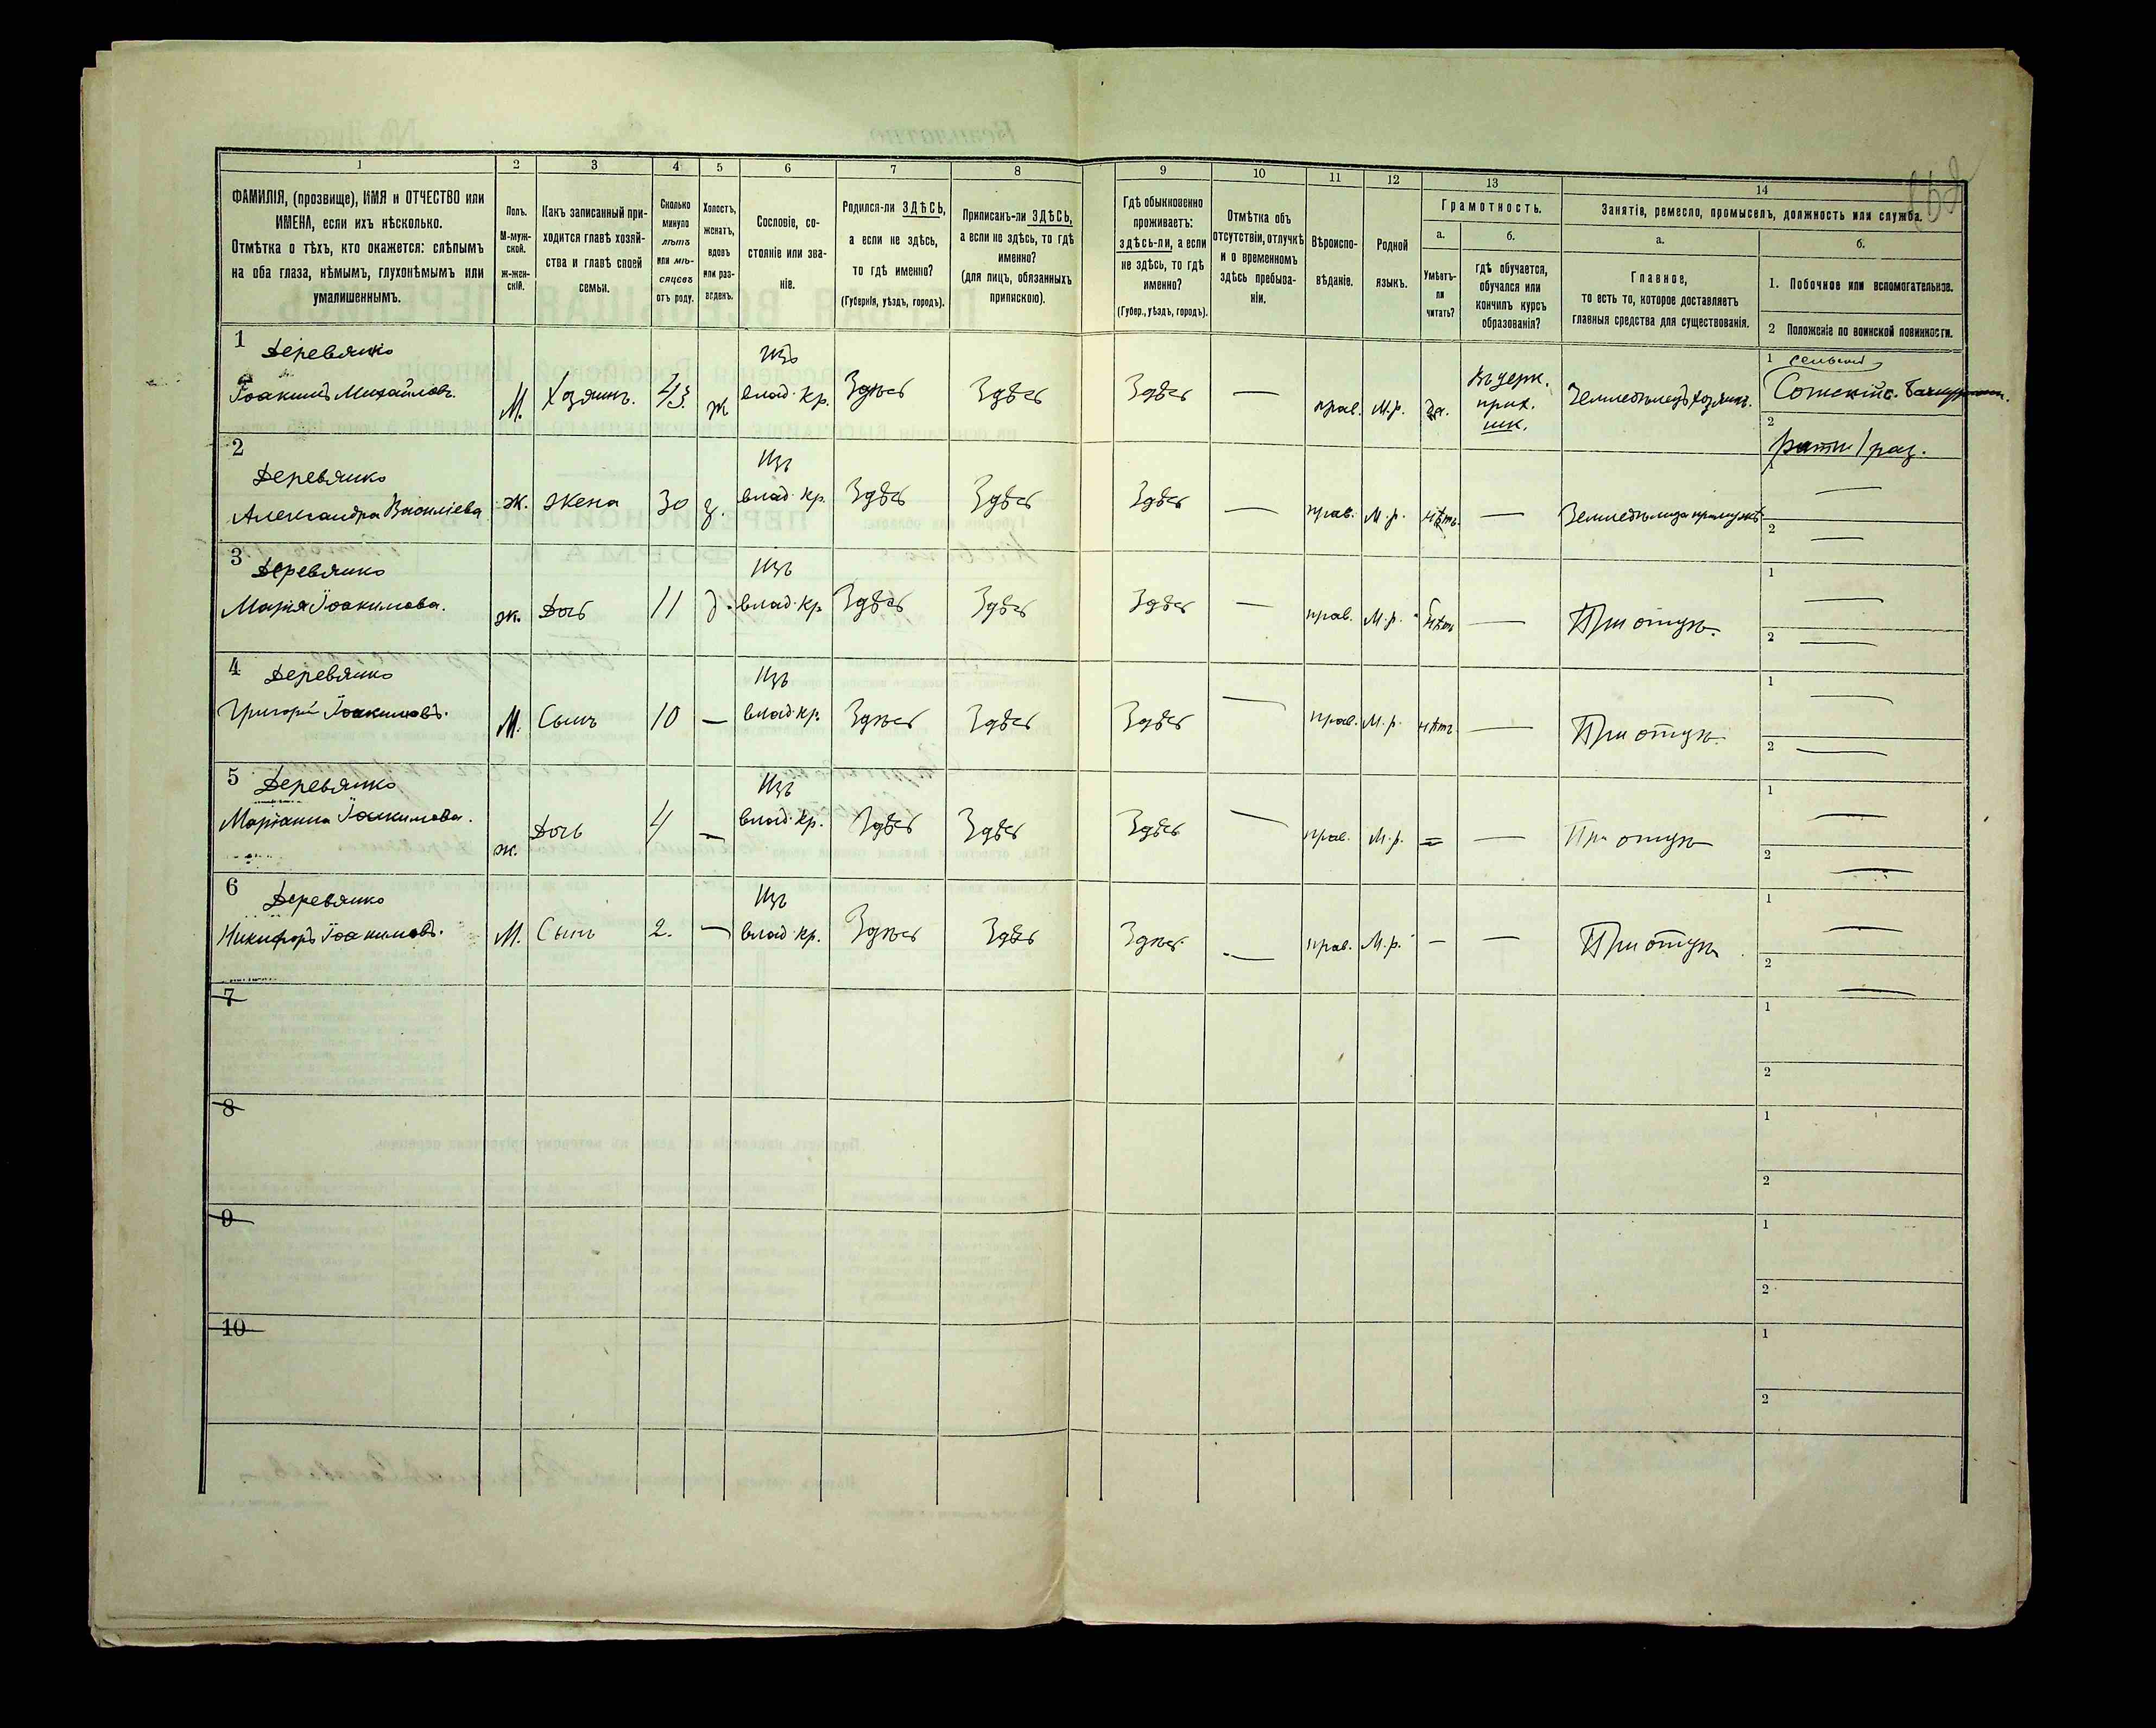 1 2 3 4 5 6 7 8 9 10 11 12 13 14
ФАМИЛІЯ, (прозвище), ИМЯ и ОТЧЕСТВО или
ИМЕНА, если ихъ нѣсколько.
Отмѣтка о тѣхъ, кто окажется: слѣпымъ
на оба глаза, нѣмымъ, глухонѣмымъ или
умалишеннымъ.
Полъ.
М-муж-
ской.
ж-жен-
скій.
Какъ записанный при-
ходится главѣ хозяй-
ства и главѣ своей
семьи.
Сколько
минуло
лѣтъ
или мѣ-
сяцевъ
отъ роду.
Холостъ,
женатъ,
вдовъ
или раз-
веденъ.
Сословіе, со-
стояніе или зва-
ніе.
Родился-ли ЗДѢСЬ,
а если не здѣсь,
то гдѣ именно?
(Губернія, уѣздъ, городъ).
Приписанъ-ли ЗДѢСЬ,
а если не здѣсь, то гдѣ
именно?
(для лицъ, обязанныхъ
припискою).
Гдѣ обыкновенно
проживаетъ:
здѣсь-ли, а если
не здѣсь, то гдѣ
именно?
(Губер., уѣздъ, городъ).
Отмѣтка объ
отсутствіи, отлучкѣ
и о временномъ
здѣсь пребыва-
ніи.
Вѣроиспо-
вѣданіе.
Родной
языкъ.
Грамотность.
а.
Умѣетъ-
ли
читать?
б.
гдѣ обучается,
обучался или
кончилъ курсъ
образованія?
Занятіе, ремесло, промыселъ, должность или служба.
а.
Главное,
то есть то, которое доставляетъ
главныя средства для существованія.
б.
1. Побочное или вспомогательное.
2 Положеніе по воинской повинности.
1 Деревянко
Іоакимъ Михайловъ.
М.
Хозяинъ.
43.
ж
изъ
влад. кр.
Здѣсь
Здѣсь
Здѣсь
—
прав.
М.р.
да.
Въ церк.
прих.
шк.
Земледѣлецъ хозяинъ.
1 сельскій
2
2 Деревянко
Александра Василіева
ж.
жена
30
з.
Изъ
влад. кр.
Здѣсь
Здѣсь
Здѣсь
—
прав.
М.р.
нѣтъ.
—
—
2 —
3 Деревянко
Марія Іоакимова.
ж.
Дочь
11
д.
Изъ
влад. кр.
Здѣсь
Здѣсь
Здѣсь
—
прав.
М.р.
нѣтъ
—
При отцѣ.
1 —
2 —
4 Деревянко
Григорій Іоакимовъ.
М.
Сынъ
10
—
Изъ
влад. кр.
Здѣсь
Здѣсь
Здѣсь
—
прав.
М.р.
нѣтъ
—
При отцѣ.
1 —
2 —
5 Деревянко
Маріанна Іоакимова.
ж.
Дочь
4
—
Изъ
влад. кр.
Здѣсь
Здѣсь
Здѣсь
—
прав.
М.р.
=
—
При отцѣ
1 —
2 —
6 Деревянко
Никифоръ Іоакимовъ.
М.
Сынъ
2.
—
Изъ
влад. кр.
Здѣсь
Здѣсь
Здѣсь.
—
прав.
М.р.
—
—
При отцѣ.
1 —
2 —
7
1
2
8
1
2
9
1
2
10
1
2